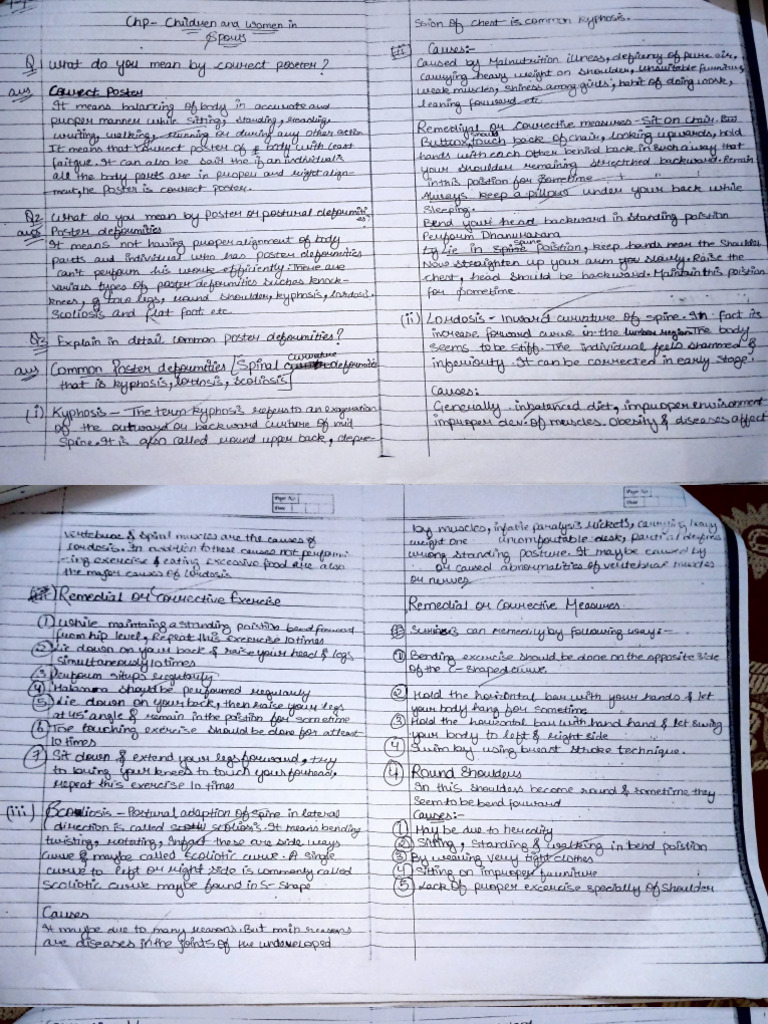 Chp- Children and Women in
Sports
Q1 What do you mean by correct poseter?
ans Correct Poster
It means balancing of body in accurate and
proper manner while sitting, standing, reading,
writing, walking, running or during any other action
It means that correct poster of body with least
faitgue. It can also be said the if an individual's
all the body parts are in proper and right align-
ment, he Poster is correct poster.
Q2 What do you mean by Poster or postural deformiti
es?
ans Poster deformities
It means not having proper alignment of body
parts and individual who has poster deformities
can't perform his work efficiently. There are
various types of poster deformities such as knock-
knees, bow legs, round shoulder, kyphosis, lordosis,
Scoliosis and flat foot etc.
Q3 Explain in detail common poster deformities?
ans Common Poster deformities [Spinal curvature deformities
that is kyphosis, lordosis, scoliosis]
(i) Kyphosis - The term kyphosis refers to an exageration
of the outward or backward curvture of mid
Spine. It is also called round upper back, depre-
ssion of chest is common kyphosis.
Causes:-
Caused by Malnutrition illness, defiency of pure air,
carrying heavy weight on shoulder, unsuitable furniture,
weak muscles, shiness among girls, habit of doing work,
leaning forward etc.
Remediyal or corrective measures - Sit on chair.
Buttox should touch back of chair, looking upwards, hold
hands with each other behind back in such a way that
your shoulder remaining stretched backward. Remain
in this poistion for Sometime
Always keep a pillow under your back while
Sleeping.
Bend your head backward in standing poistion
Perform Dhanurasana
lie in spine Poistion, keep hands near the shoulder
Now straighten up your arm slowly. Raise the
chest, head should be backward. Maintain this poistion
for Sometime.
(ii) Lordosis - Inward curvature of spine. In fact its
increase forward curve in the lumber region. The body
seems to be stiff. The individual feels shammed &
inferiosity. It can be corrected in early stage.
Causes:
Generally inbalanced diet, improper environment
improper dev. of muscles. Obesity & diseases affect
vertebrae & spinal muscles are the causes of
lordosis. In addition to these causes not perform
-ing exercise & eating excessive food are also
the major causes of lordosis
Remedial or Corrective Exercise
(1) While maintaing a standing poistion bend forward
from hip level, Repeat this excercise 10 times
(2) Lie down on your back & raise your head & legs
Simultaneously 10 times
3 Perform situps regularly
(4) Halasana should be performed regularly
(5) Lie down on your back, then raise your legs
at 45° angle & remain in the poistion for sometime
(6) Toe touching exercise should be done for atleast
10 times
(7) Sit down & extend your legs forward, try
to bring your knees to touch your forhead,
repeat this exercise 10 times
(iii) Scoliosis - Postural adaption of spine in lateral
direction is called scoliosis. It means bending
twisting, rotating, Infact these are side ways
curve & maybe called Scoliotic curve. A single
curve to left or right side is commonly called
Scoliotic curve may be found in S- shape
Causes
It maybe due to many reasons. But main reasons
are diseases in the joints of the undeveloped
Page No.
Date
Page No.
Date
leg muscles, infatile paralysis rickets, carrying heavy
weight one uncomfortable desk, partial deafness
wrong standing posture. It may be caused by
or caused abnormalities of vertebrae muscles
or nerves
Remedial or Corrective Measures.
can remedily by following way:-
(1) Bending exercise should be done on the opposite side
of the C- shaped curve.
(2) Hold the horizontal bar with your hands & let
your body hang for sometime
(3) Hold the horizontal bar with hand hand & let swing
your body to left & right side
(4) Swim by using breast stroke technique.
(4) Round Shoulders
In this shoulders become round & sometime they
seem to be bend forward
Causes:-
(1) May be due to heredity
(2) Sitting, Standing & walking in bend poistion
(3) By wearing very tight clothes
(4) Sitting on improper furniture
(5) Lack of proper excercise specially of Shoulder